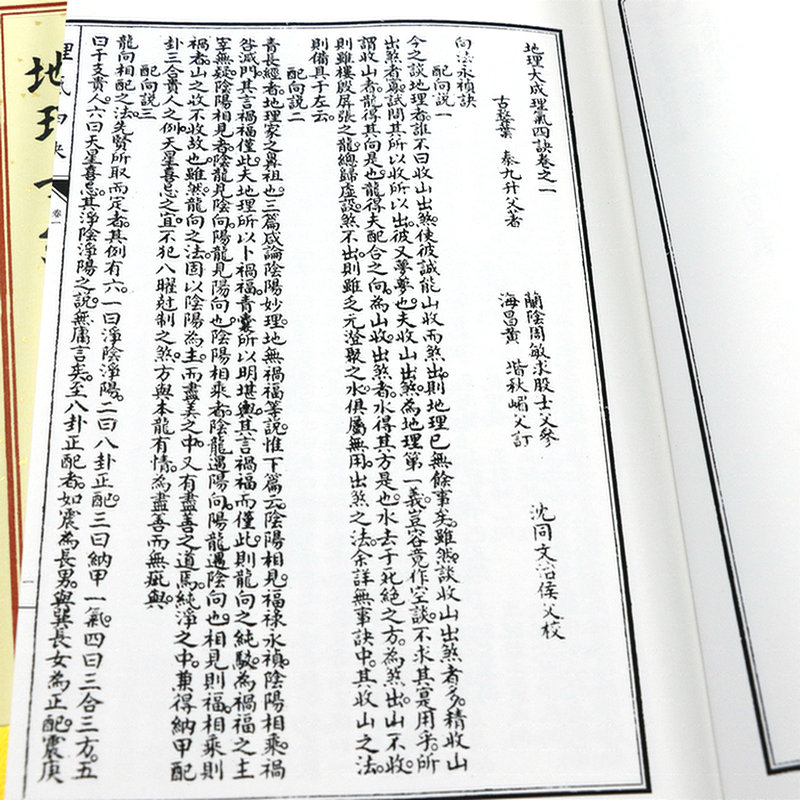 地理大成理氣四訣卷之一
古婺葉 泰九升父著
蘭陰周敏求股士父參
海昌黃 堦秋嵋父訂
沈同文治侯父校
向法永禎訣
配向說一
今之談地理者。誰不曰收山出煞。使彼誠能山收而煞出。則地理已無餘事矣。雖然談收山出煞者多。精收山
出煞者寡。試問其所以收。所以出。彼又夢夢也。夫收山出煞為地理第一義。豈容竟作空談。不求其寔用乎。所
謂收山者。龍得其向是也。龍得夫配合之向。為山收。出煞者。水得其方是也。水去于死絕之方。為煞出。山不收。
則雖樓殿屏張之龍。總歸虛設。煞不出。則雖乏元澄聚之水。俱屬無用。出煞之法。余詳無事訣中。其收山之法。
則備具于左云。
配向說二
青長經者。地理家之鼻祖也。三篇咸論陰陽妙理。地無禍福等說。惟下篇云。陰陽相見。福祿永禎。陰陽相乘。禍
咎滅門。其言禍福僅此。夫地理所以卜禍福。青囊所以明堪輿。其言禍福而僅此。則龍向之純駁。為禍福之主
宰無疑。陰陽相見者。陰龍見陰向。陽龍見陽向也。陰陽相乘者。陰龍遇陽向。陽龍遇陰向也。相見則福。相乘則
禍者。山之收不收故也。雖然。龍向之法。固以陰陽為主。而盡美之中。又有盡善之道焉。純淨之中。兼得納甲配
卦三合貴人之例。天星喜忌之宜。不犯八曜尅制之煞。方與本龍有情。為盡善而無疵與。
配向說三
龍向相配之法。先賢所取而定者。其例有六。一曰淨陰淨陽。二曰八卦正配。三曰納甲一氣。四曰三合三方。五
曰干支貴人。六曰天星喜忌。其淨陰淨陽之說。無庸言矣。至八卦正配者。如震為長男。與巽長女為正配。震庚
卷一
一
地理